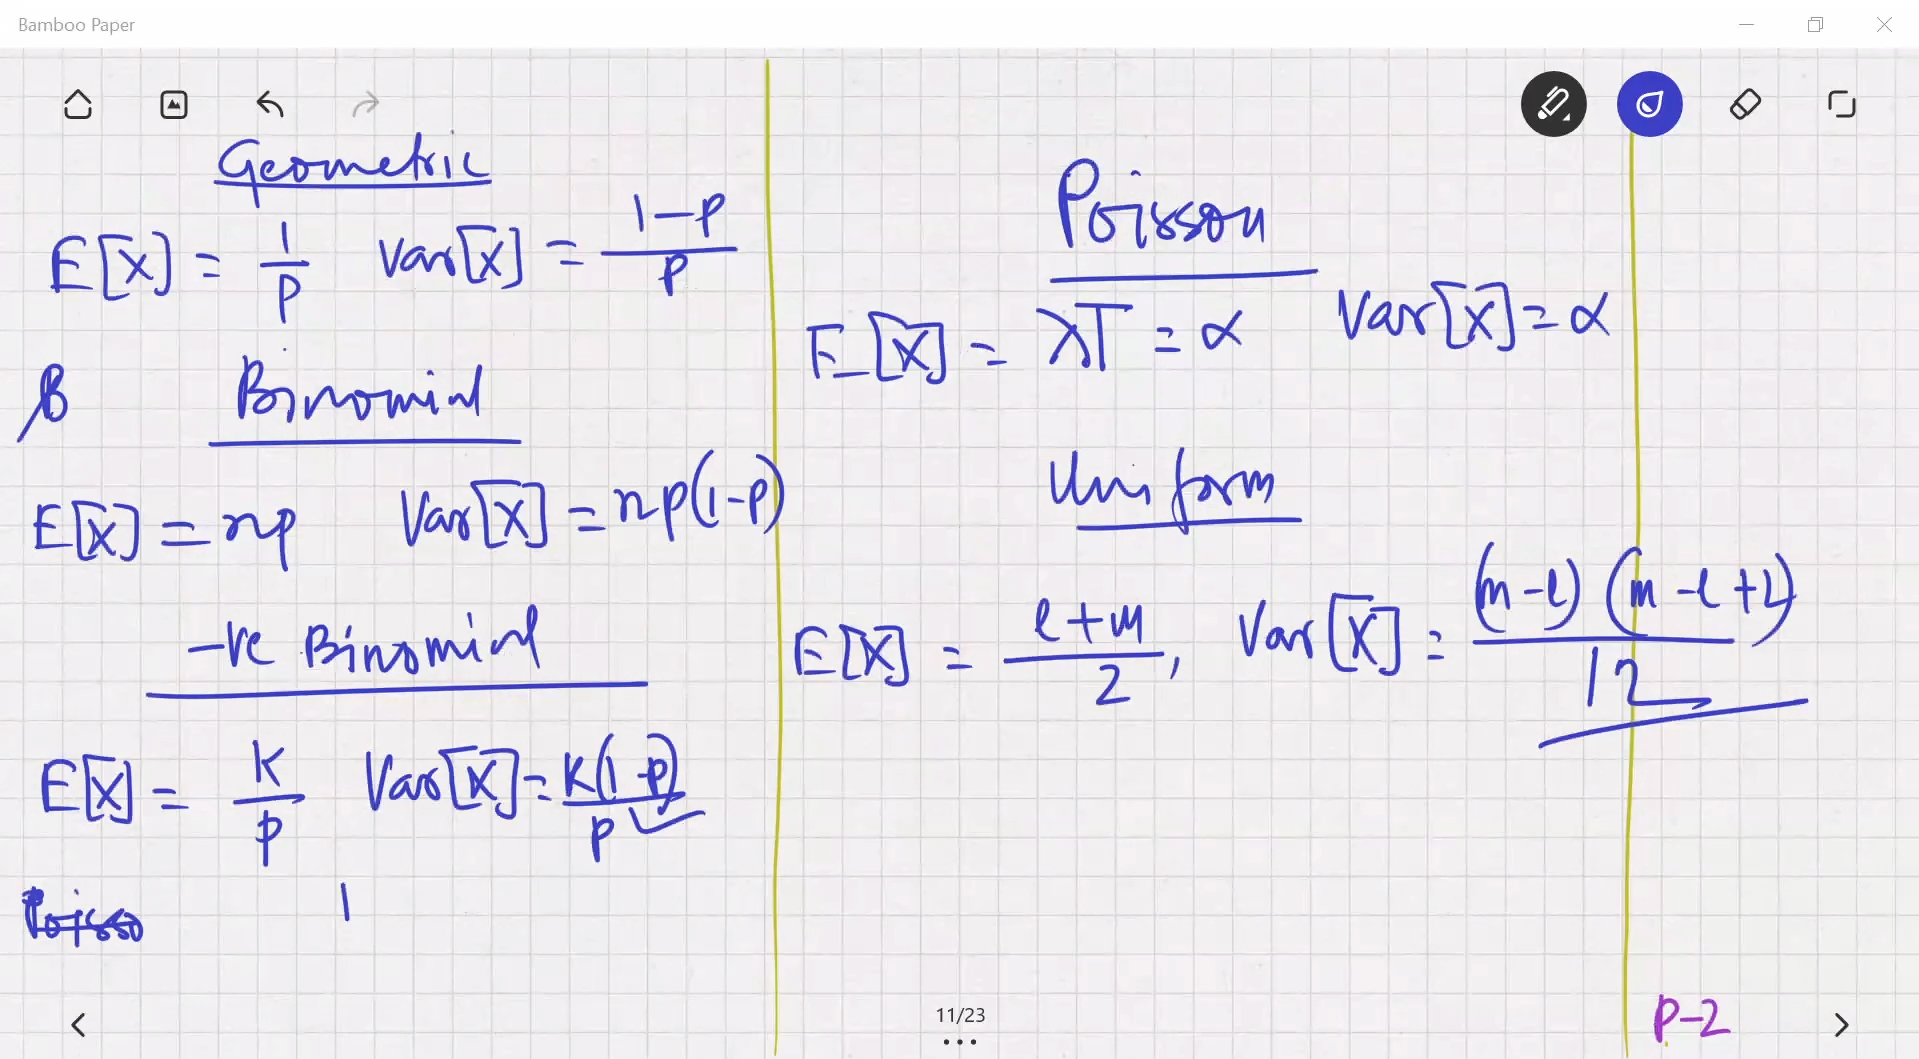 Bamboo Paper
Geometric
E[X] = 1/P Var[X] = 1-P/P
B Binomial
E[X] = np Var[X] = np(1-p)
-ve Binomial
E[X] = K/p Var[X] = K(1-p)/p
Poisso 1
Poisson
E[X] = λT = α Var[X] = α
Uniform
E[X] = l+m/2, Var[X] = (m-l)(m-l+2)/12
11/23
P-2